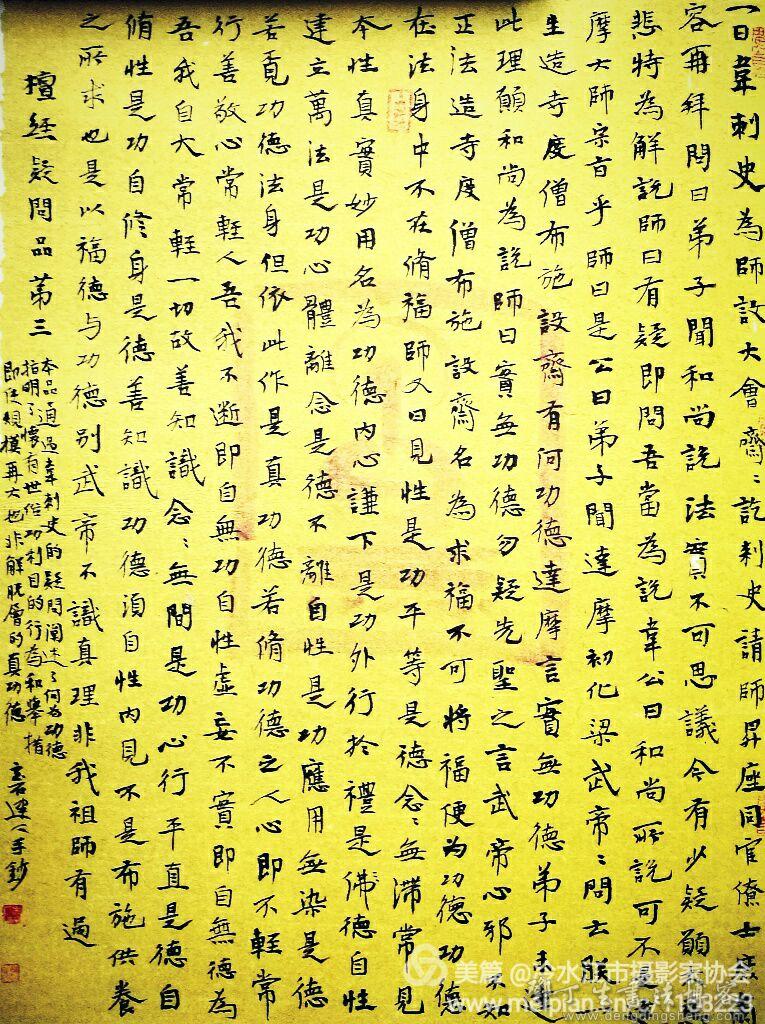 一日韋刺史為師設大會齋〻訖刺史請師昇座同官僚士庶肅
容再拜問曰弟子聞和尚說法實不可思議今有少疑願
悲特為解說師曰有疑即問吾當為說韋公曰和尚所說可不是
摩大師宗旨乎師曰是公曰弟子聞達摩初化梁武帝〻問云朕
生造寺度僧布施設齋有何功德達摩言實無功德弟子未
此理願和尚為說師曰實無功德勿疑先聖之言武帝心邪不知
正法造寺度僧布施設齋名為求福不可將福便為功德功德
在法身中不在脩福師又曰見性是功平等是德念〻無滯常見
本性真實妙用名為功德內心謙下是功外行於禮是佛德自性
建立萬法是功心體離念是德不離自性是功應用無染是德
若覓功德法身但依此作是真功德若脩功德之人心即不輕常
行善敬心常輕人吾我不斷即自無功自性虛妄不實即自無德為
吾我自大常輕一切故善知識念〻無間是功心行平直是德自
脩性是功自修身是德善知識功德須自性內見不是布施供養
之所求也是以福德与功德別武帝不識真理非我祖師有過
壇經疑問品第三
本品通過韋刺史的疑問阐述了何为功德
指明了懷有世俗功利目的行为和舉措
即使規模再大也非解脫層的真功德
手鈔
美篇 @冷水江市摄影家协会
www.meipian.cn
183223
www.dengdingsheng.com